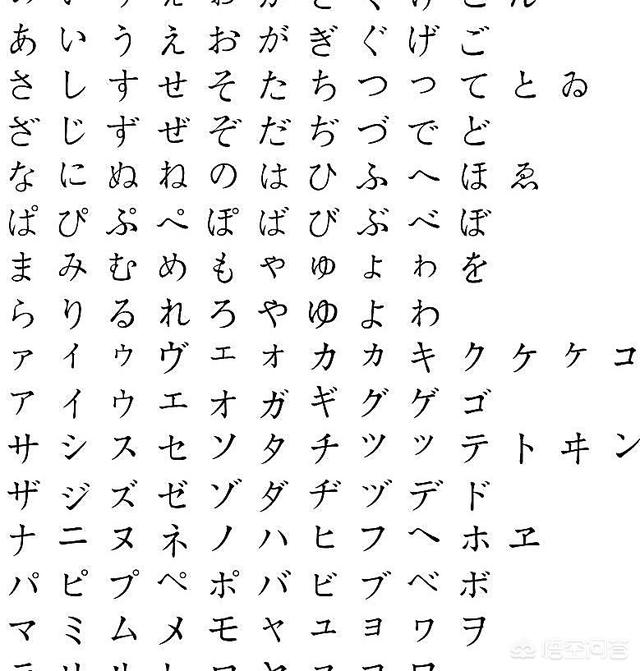 あ い う え お が ぎ ぐ げ ご
さ し す せ そ た ち つ っ て と ゐ
ざ じ ず ぜ ぞ だ ぢ づ で ど
な に ぬ ね の は ひ ふ へ ほ ゑ
ぱ ぴ ぷ ぺ ぽ ば び ぶ べ ぼ
ま み む め も ゃ ゅ ょ ゎ を
ら り る れ ろ や ゆ よ わ
ァ ィ ゥ ヴ ェ ォ カ ヵ キ ク ケ ヶ コ
ア イ ウ エ オ ガ ギ グ ゲ ゴ
サ シ ス セ ソ タ チ ツ ッ テ ト ヰ ン
ザ ジ ズ ゼ ゾ ダ ヂ ヅ デ ド
ナ ニ ヌ ネ ノ ハ ヒ フ ヘ ホ ヱ
パ ピ プ ペ ポ バ ビ ブ ベ ボ
マ ミ ム メ モ ャ ュ ョ ヮ ヲ
悟空问答